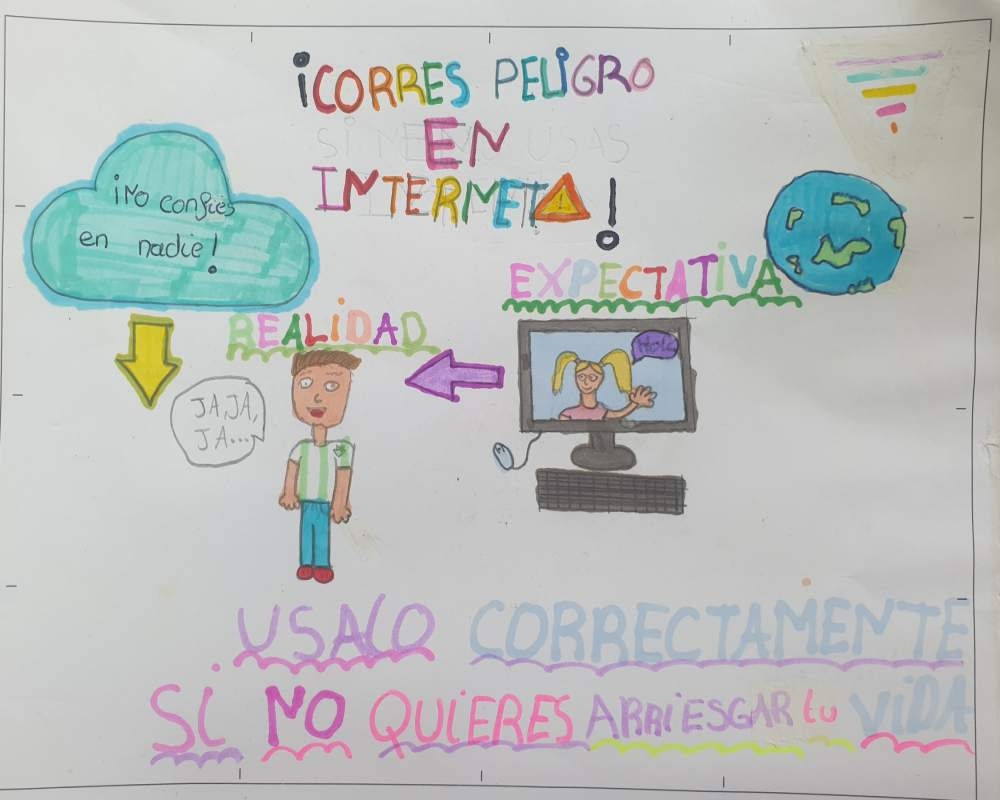 ¡CORRES PELIGRO
EN
INTERNET!
¡No confíes
en nadie!
EXPECTATIVA
REALIDAD
Hola
JA, JA,
JA...
USALO CORRECTAMENTE
Si NO QUiERES ARRiESGAR tu ViDA